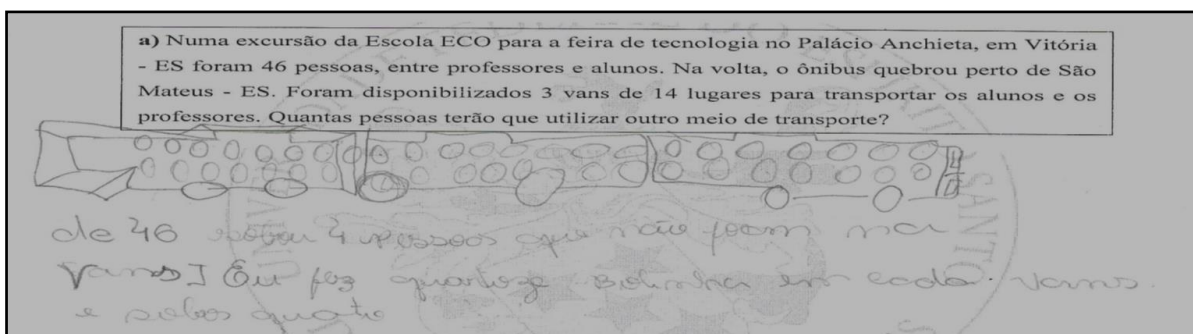 a) Numa excursão da Escola ECO para a feira de tecnologia no Palácio Anchieta, em Vitória
- ES foram 46 pessoas, entre professores e alunos. Na volta, o ônibus quebrou perto de São
Mateus - ES. Foram disponibilizados 3 vans de 14 lugares para transportar os alunos e os
professores. Quantas pessoas terão que utilizar outro meio de transporte?
de 46 4 pessoas que não foram na
vans Eu fez quartoze bolinha em cada vans.
e
SANTO